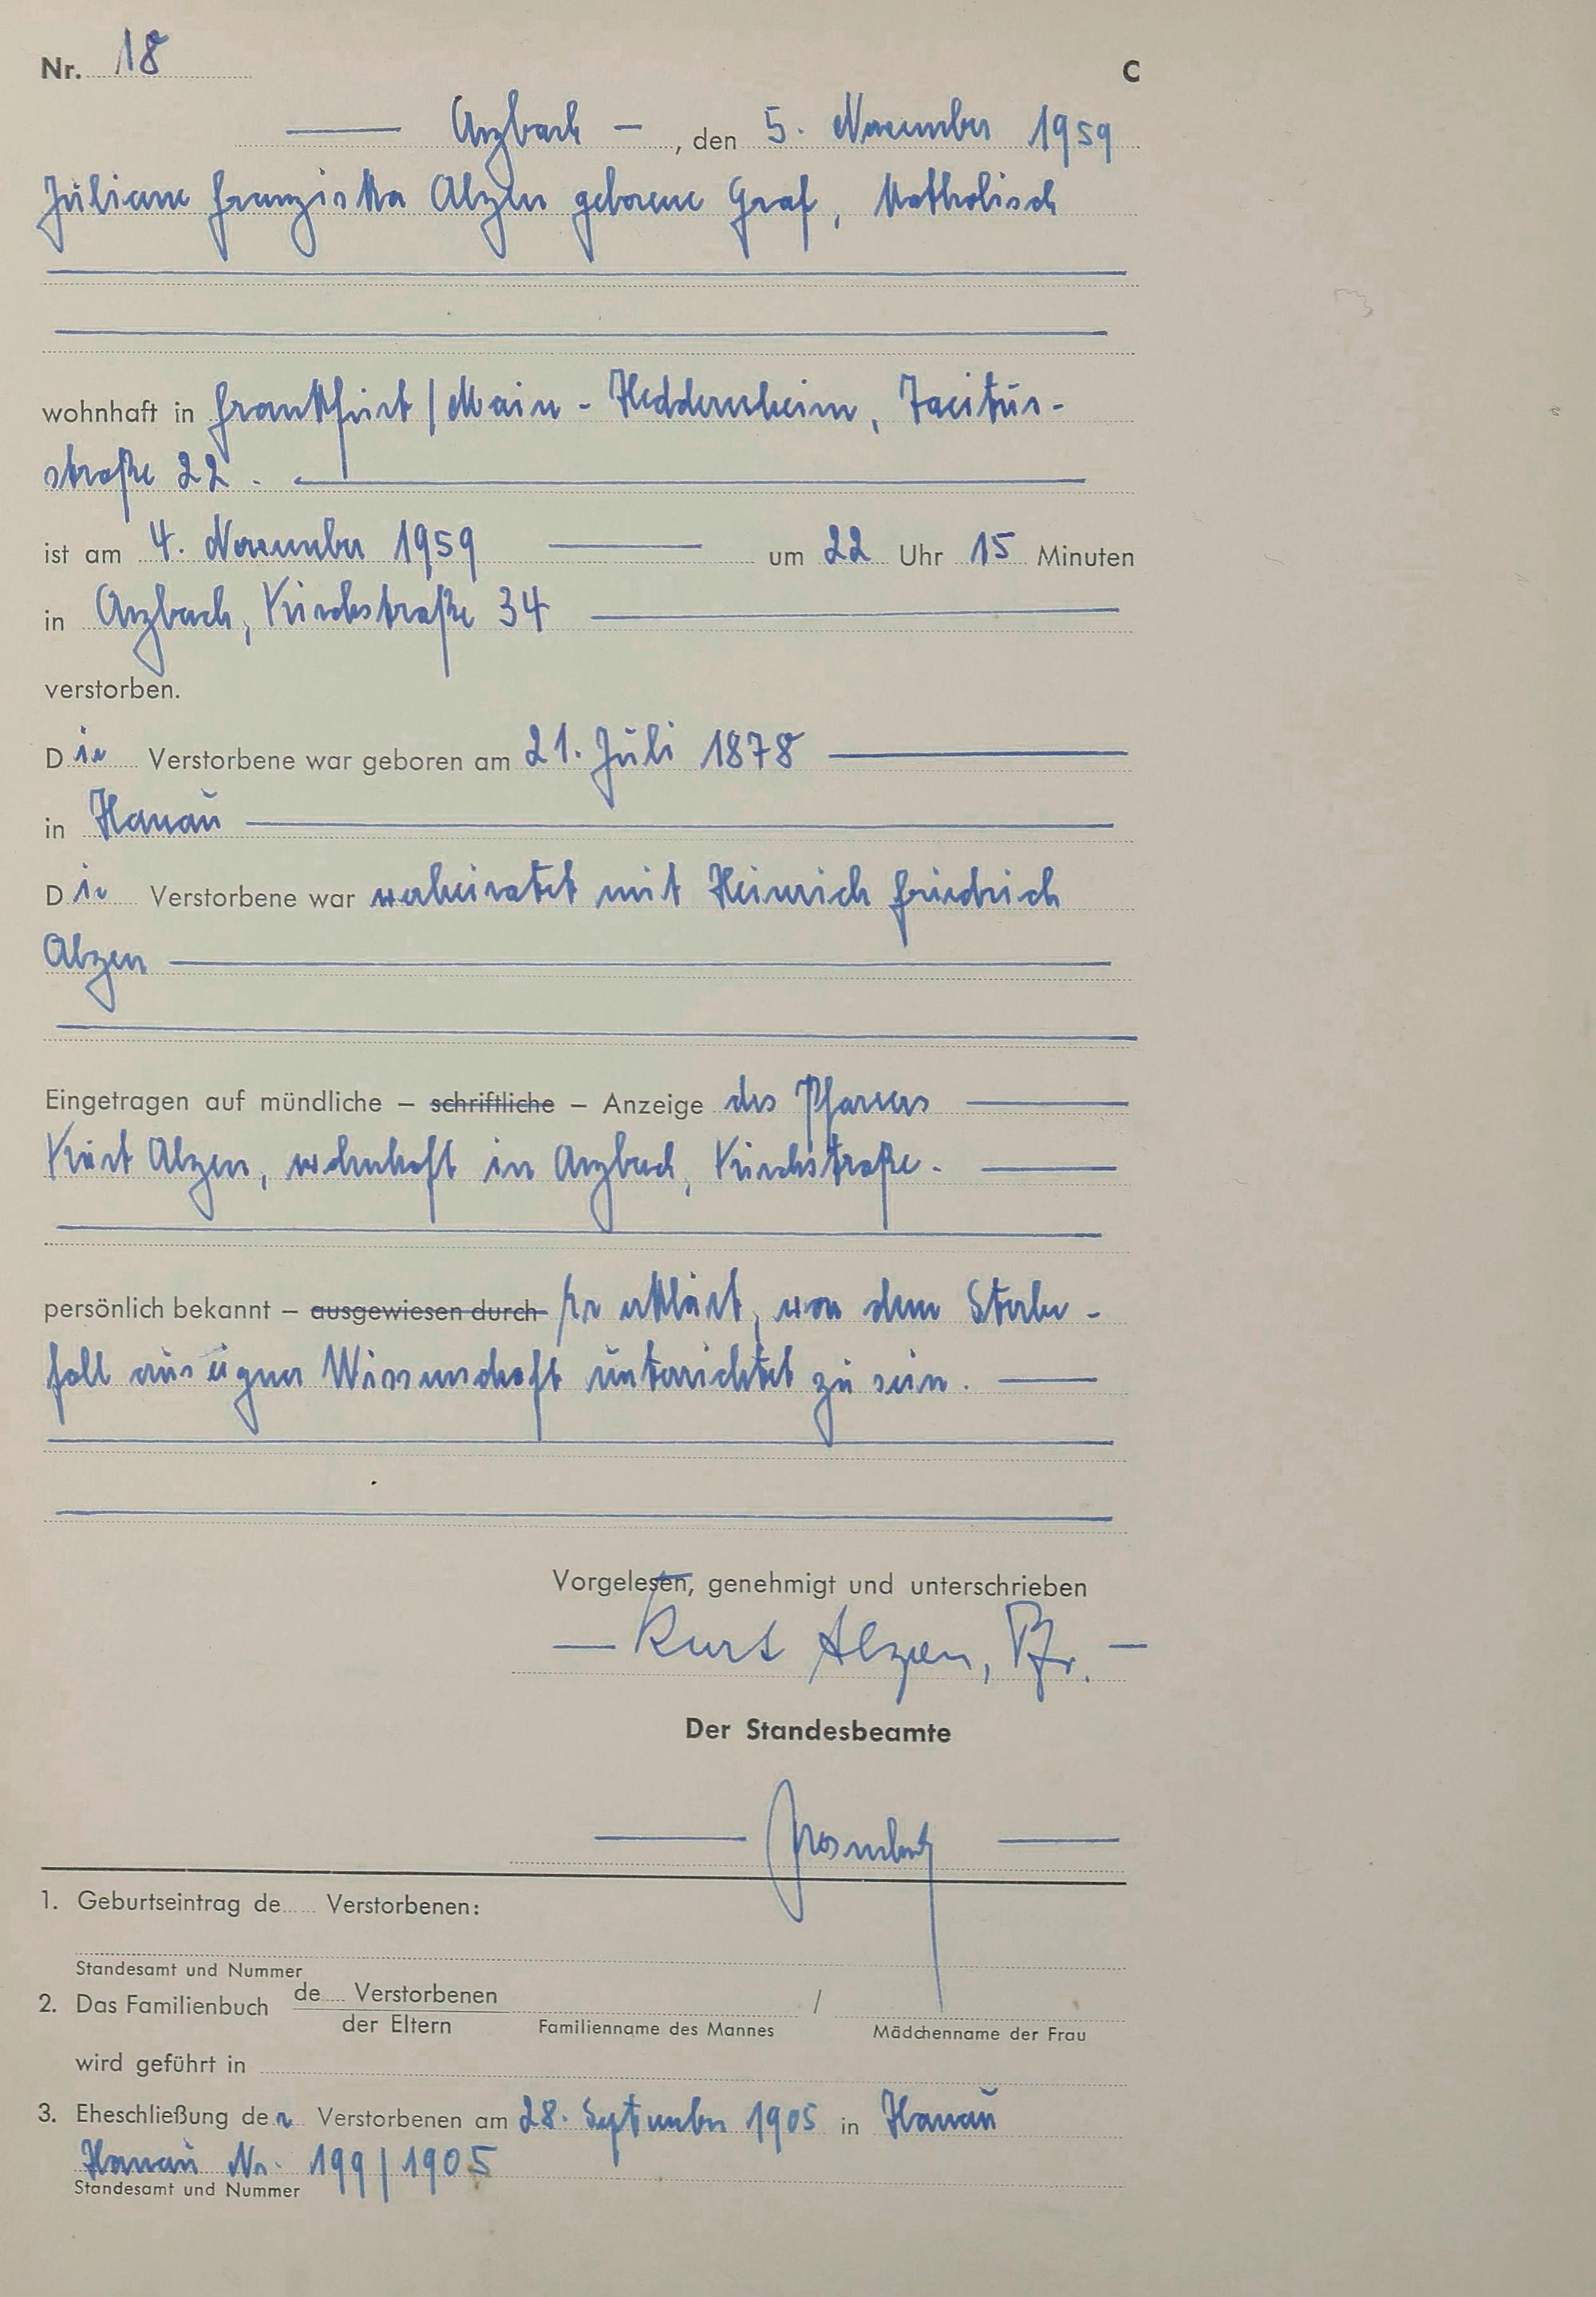 Nr. 18 C
Arzbach, den 5. November 1959
Juliane Franziska Alzen geborene Graf, katholisch
wohnhaft in Frankfurt/Main - Heddernheim, Tacitus-
straße 22.
ist am 4. November 1959 um 22 Uhr 15 Minuten
in Arzbach, Kirchstraße 34
verstorben.
Die Verstorbene war geboren am 21. Juli 1878
in Hanau
Die Verstorbene war verheiratet mit Heinrich Friedrich
Alzen
Eingetragen auf mündliche – schriftliche – Anzeige des Pfarrers
Kurt Alzen, wohnhaft in Arzbach, Kirchstraße.
persönlich bekannt – ausgewiesen durch Er erklärt, von dem Sterbe-
fall aus eigner Wissenschaft unterrichtet zu sein.
Vorgelesen, genehmigt und unterschrieben
Kurt Alzen, Pfr.
Der Standesbeamte
1. Geburtseintrag de Verstorbenen:
Standesamt und Nummer
2. Das Familienbuch de Verstorbenen /
der Eltern Familienname des Mannes Mädchenname der Frau
wird geführt in
3. Eheschließung der Verstorbenen am 28. September 1905 in Hanau
Hanau Nr. 199/1905
Standesamt und Nummer